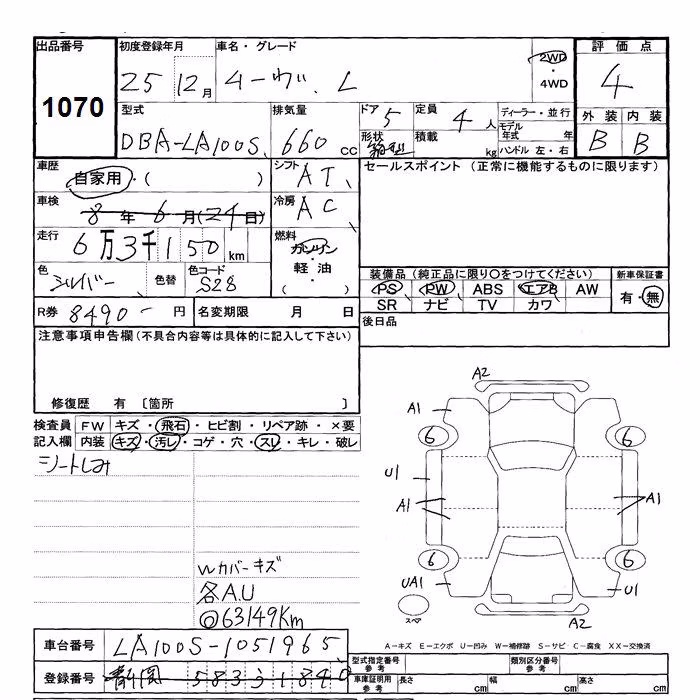 出品番号 初度登録年月 車名・グレード 評価点
1070 25 12月 ムーヴ L 2WD・4WD 4
型式 排気量 ドア 5 定員 4人 ディーラー・並行 外装 内装
DBA-LA100S 660cc 形状 箱型 積載 kg モデル年式 年 B B
ハンドル 左・右
車歴 自家用・( ) シフト AT セールスポイント(正常に機能するものに限ります)
車検 8年6月(24日) 冷房 AC
走行 6万3千150km 燃料 ガソリン・軽油・( )
色 シルバー 色替 色コード S28 装備品(純正品に限り○をつけてください) 新車保証書
PS PW ABS エアB AW 有・無
R券 8490-円 名変期限 月 日 SR ナビ TV カワ
注意事項申告欄(不具合内容等は具体的に記入して下さい) 後日品
修復歴 有 〔箇所 〕
検査員 FW キズ・飛石・ヒビ割・リペア跡・×要
記入欄 内装 キズ・汚レ・コゲ・穴・スレ・キレ・破レ
シートしみ
A2
A1
6 6
U1
A1 A1
6 6
UA1 U1
スペア A2
Wカバーキズ
各A.U
@63149Km
A-キズ E-エクボ U-凹み W-補修跡 S-サビ C-腐食 XX-交換済
車台番号 LA100S-1051965 型式指定番号 参考 類別区分番号 参考
登録番号 静岡 583 31840 車庫証明用 参考 長さ cm 幅 cm 高さ cm